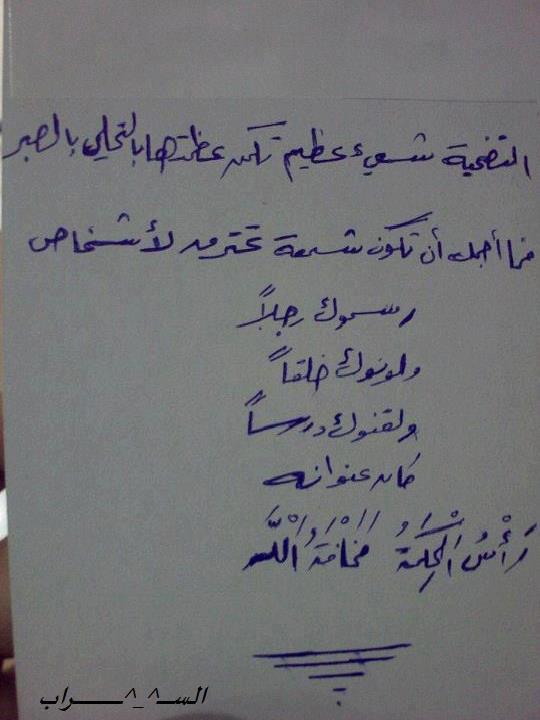 التضحية شيء عظيم تكمن عظمتها بالتحلي بالصبر
فما أجمل أن تكون شمعة تحترق لأشخاص
رسموك رجلاً
ولونوك خلقاً
ولقنوك درساً
كان عنوانه
رَأْسُ الْحِكْمَةُ مَخَافَةُ اللَّه
الســ^_^ــــراب